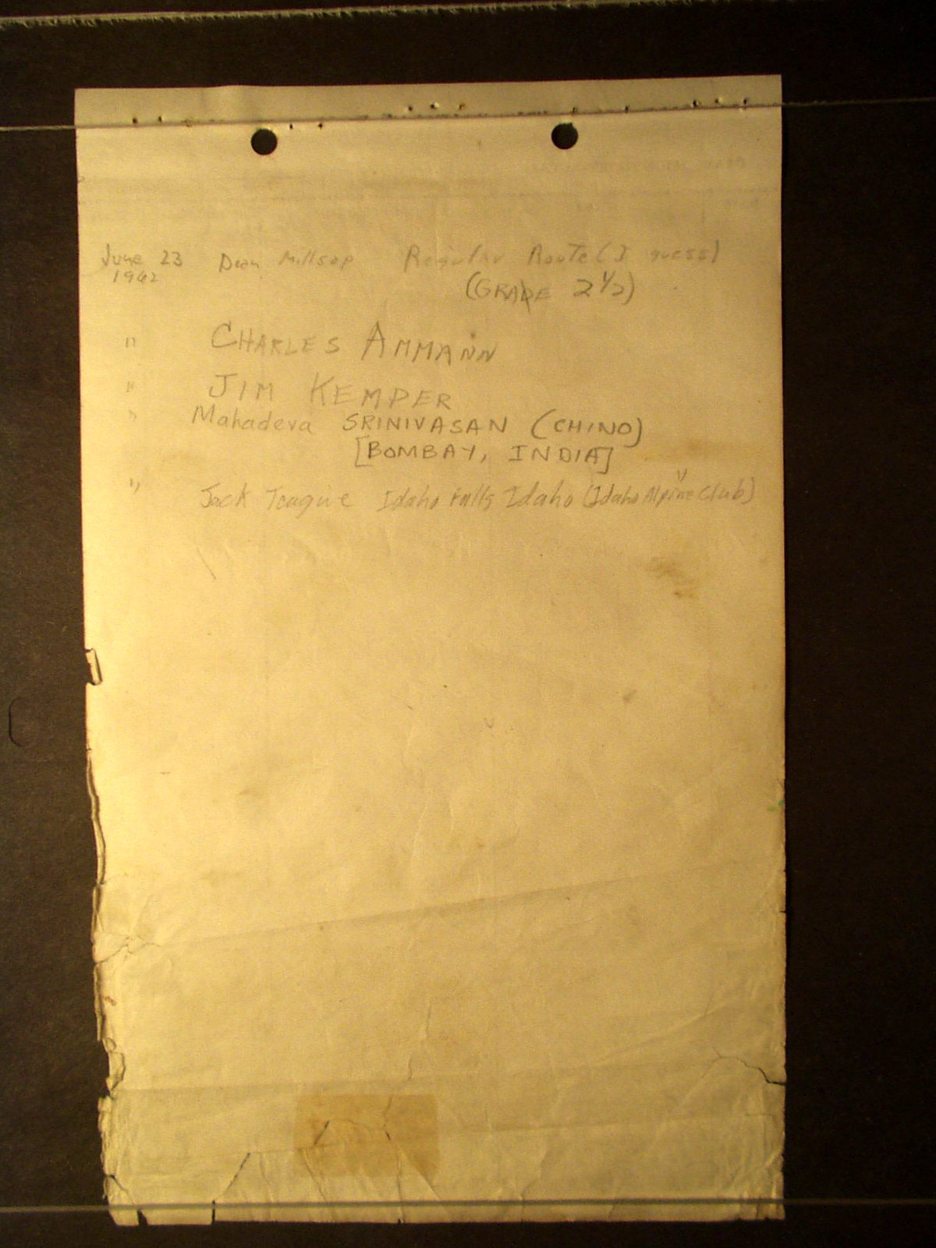 June 23 Dean Millsap Regular Route (I guess)
1962 (GRADE 2 1/2)
" CHARLES AMMANN
" JIM KEMPER
" Mahadeva SRINIVASAN (CHINO)
[BOMBAY, INDIA]
" Jack Teague Idaho Falls Idaho (Idaho Alpine Club) "